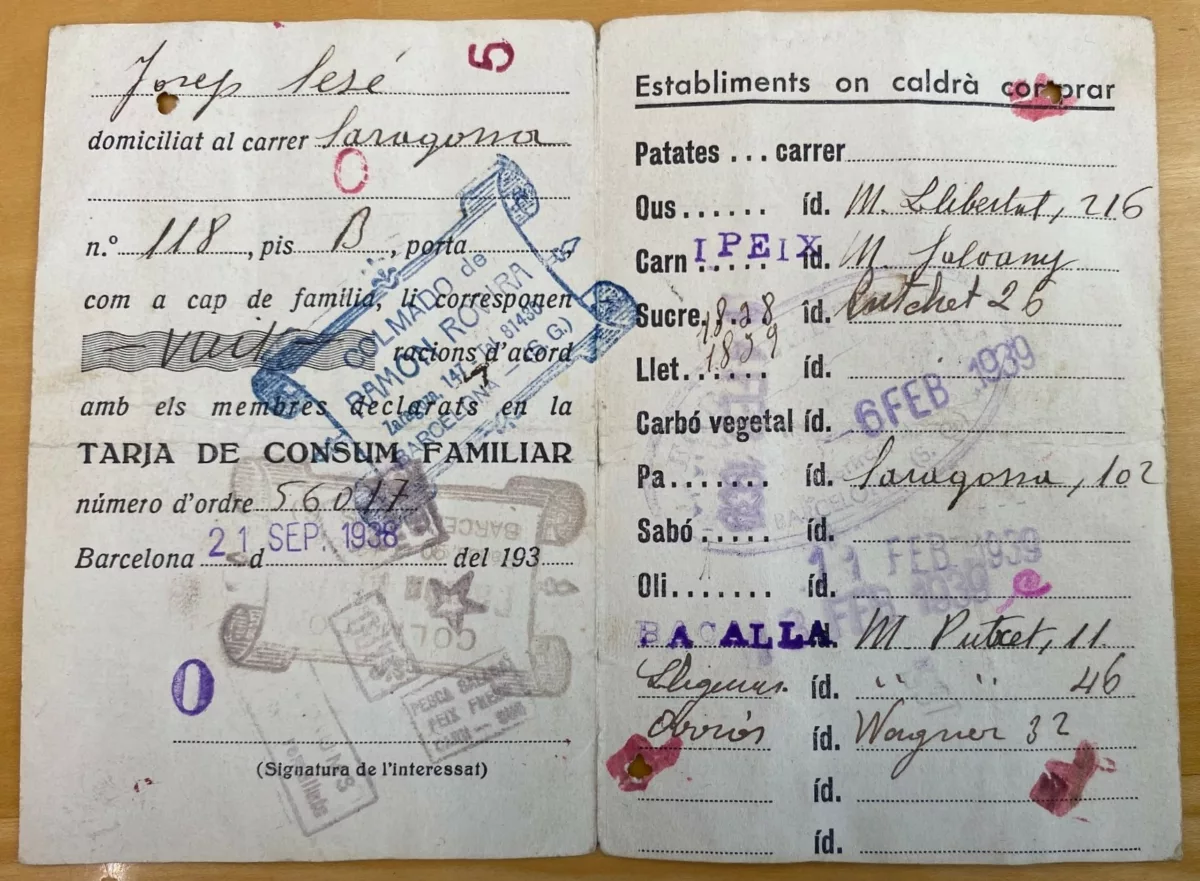 5
Josep Sesé
domiciliat al carrer Saragossa
0
n.º 118, pis B, porta
com a cap de familia, li corresponen
— vuit — racions d'acord
amb els membres declarats en la
TARJA DE CONSUM FAMILIAR
número d'ordre 56017
Barcelona 21 d SEP. 1938 del 193
COLMADO de
RAMÓN ROVIRA
BARCELONA — (S. G.)
0
PESCA SALADA
PEIX FRESC
(Signatura de l'interessat)
Establiments on caldrà comprar
Patates ... carrer
Ous ...... íd. M. Llibertat, 216
Carn I PEIX íd. M.
Sucre. íd. Putchet 26
Llet ...... íd.
Carbó vegetal íd.
6 FEB 1939
Pa ....... íd. Saragossa, 102
Sabó ..... íd.
11 FEB. 1939
Oli ....... íd.
FEB 1939
BACALLA íd. M. Putxet, 11
Lleguns. íd. " " 46
Arròs íd. Wagner 32
íd.
íd.